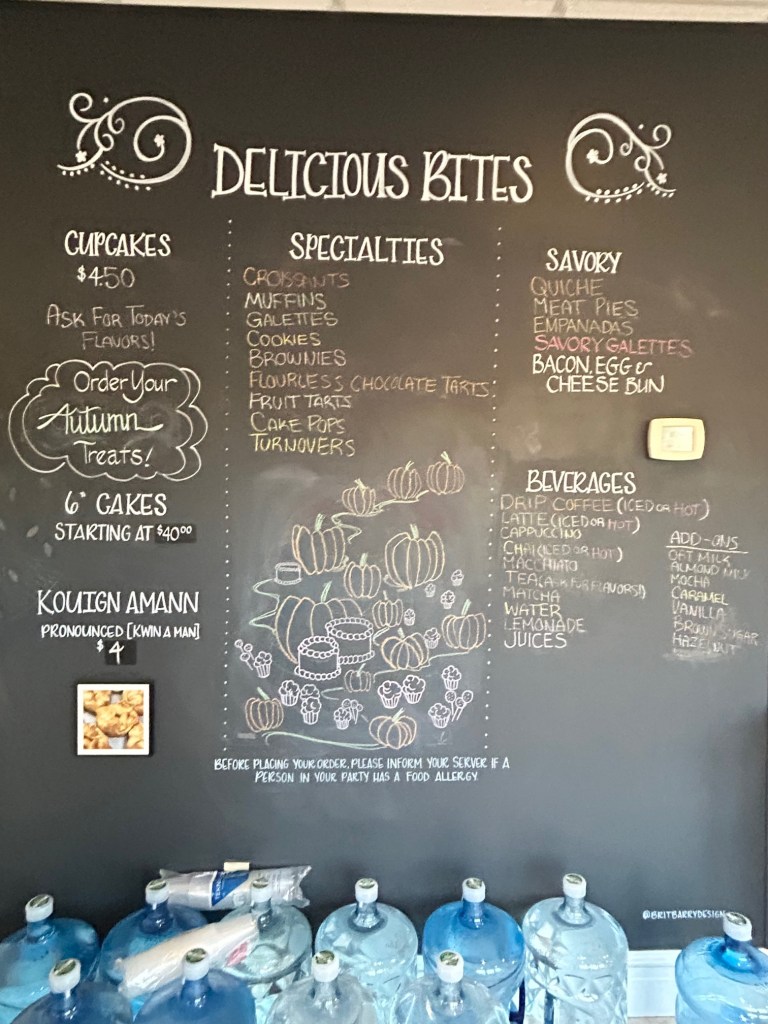 DELICIOUS BITES
CUPCAKES
$4.50
ASK FOR TODAY'S
FLAVORS!
Order Your
Autumn
Treats!
6" CAKES
STARTING AT $40.00
KOUIGN AMANN
PRONOUNCED [KWIN A MAN]
$4
SPECIALTIES
CROISSANTS
MUFFINS
GALETTES
COOKIES
BROWNIES
FLOURLESS CHOCOLATE TARTS
FRUIT TARTS
CAKE POPS
TURNOVERS
BEFORE PLACING YOUR ORDER, PLEASE INFORM YOUR SERVER IF A
PERSON IN YOUR PARTY HAS A FOOD ALLERGY.
SAVORY
QUICHE
MEAT PIES
EMPANADAS
SAVORY GALETTES
BACON, EGG &
CHEESE BUN
BEVERAGES
DRIP COFFEE (ICED OR HOT)
LATTE (ICED OR HOT)
CAPPUCCINO
CHAI (ICED OR HOT)
MACCHIATO
TEA (ASK FOR FLAVORS!)
MATCHA
WATER
LEMONADE
JUICES
ADD-ONS
OAT MILK
ALMOND MILK
MOCHA
CARAMEL
VANILLA
BROWN SUGAR
HAZELNUT
@BRITBARRYDESIGN